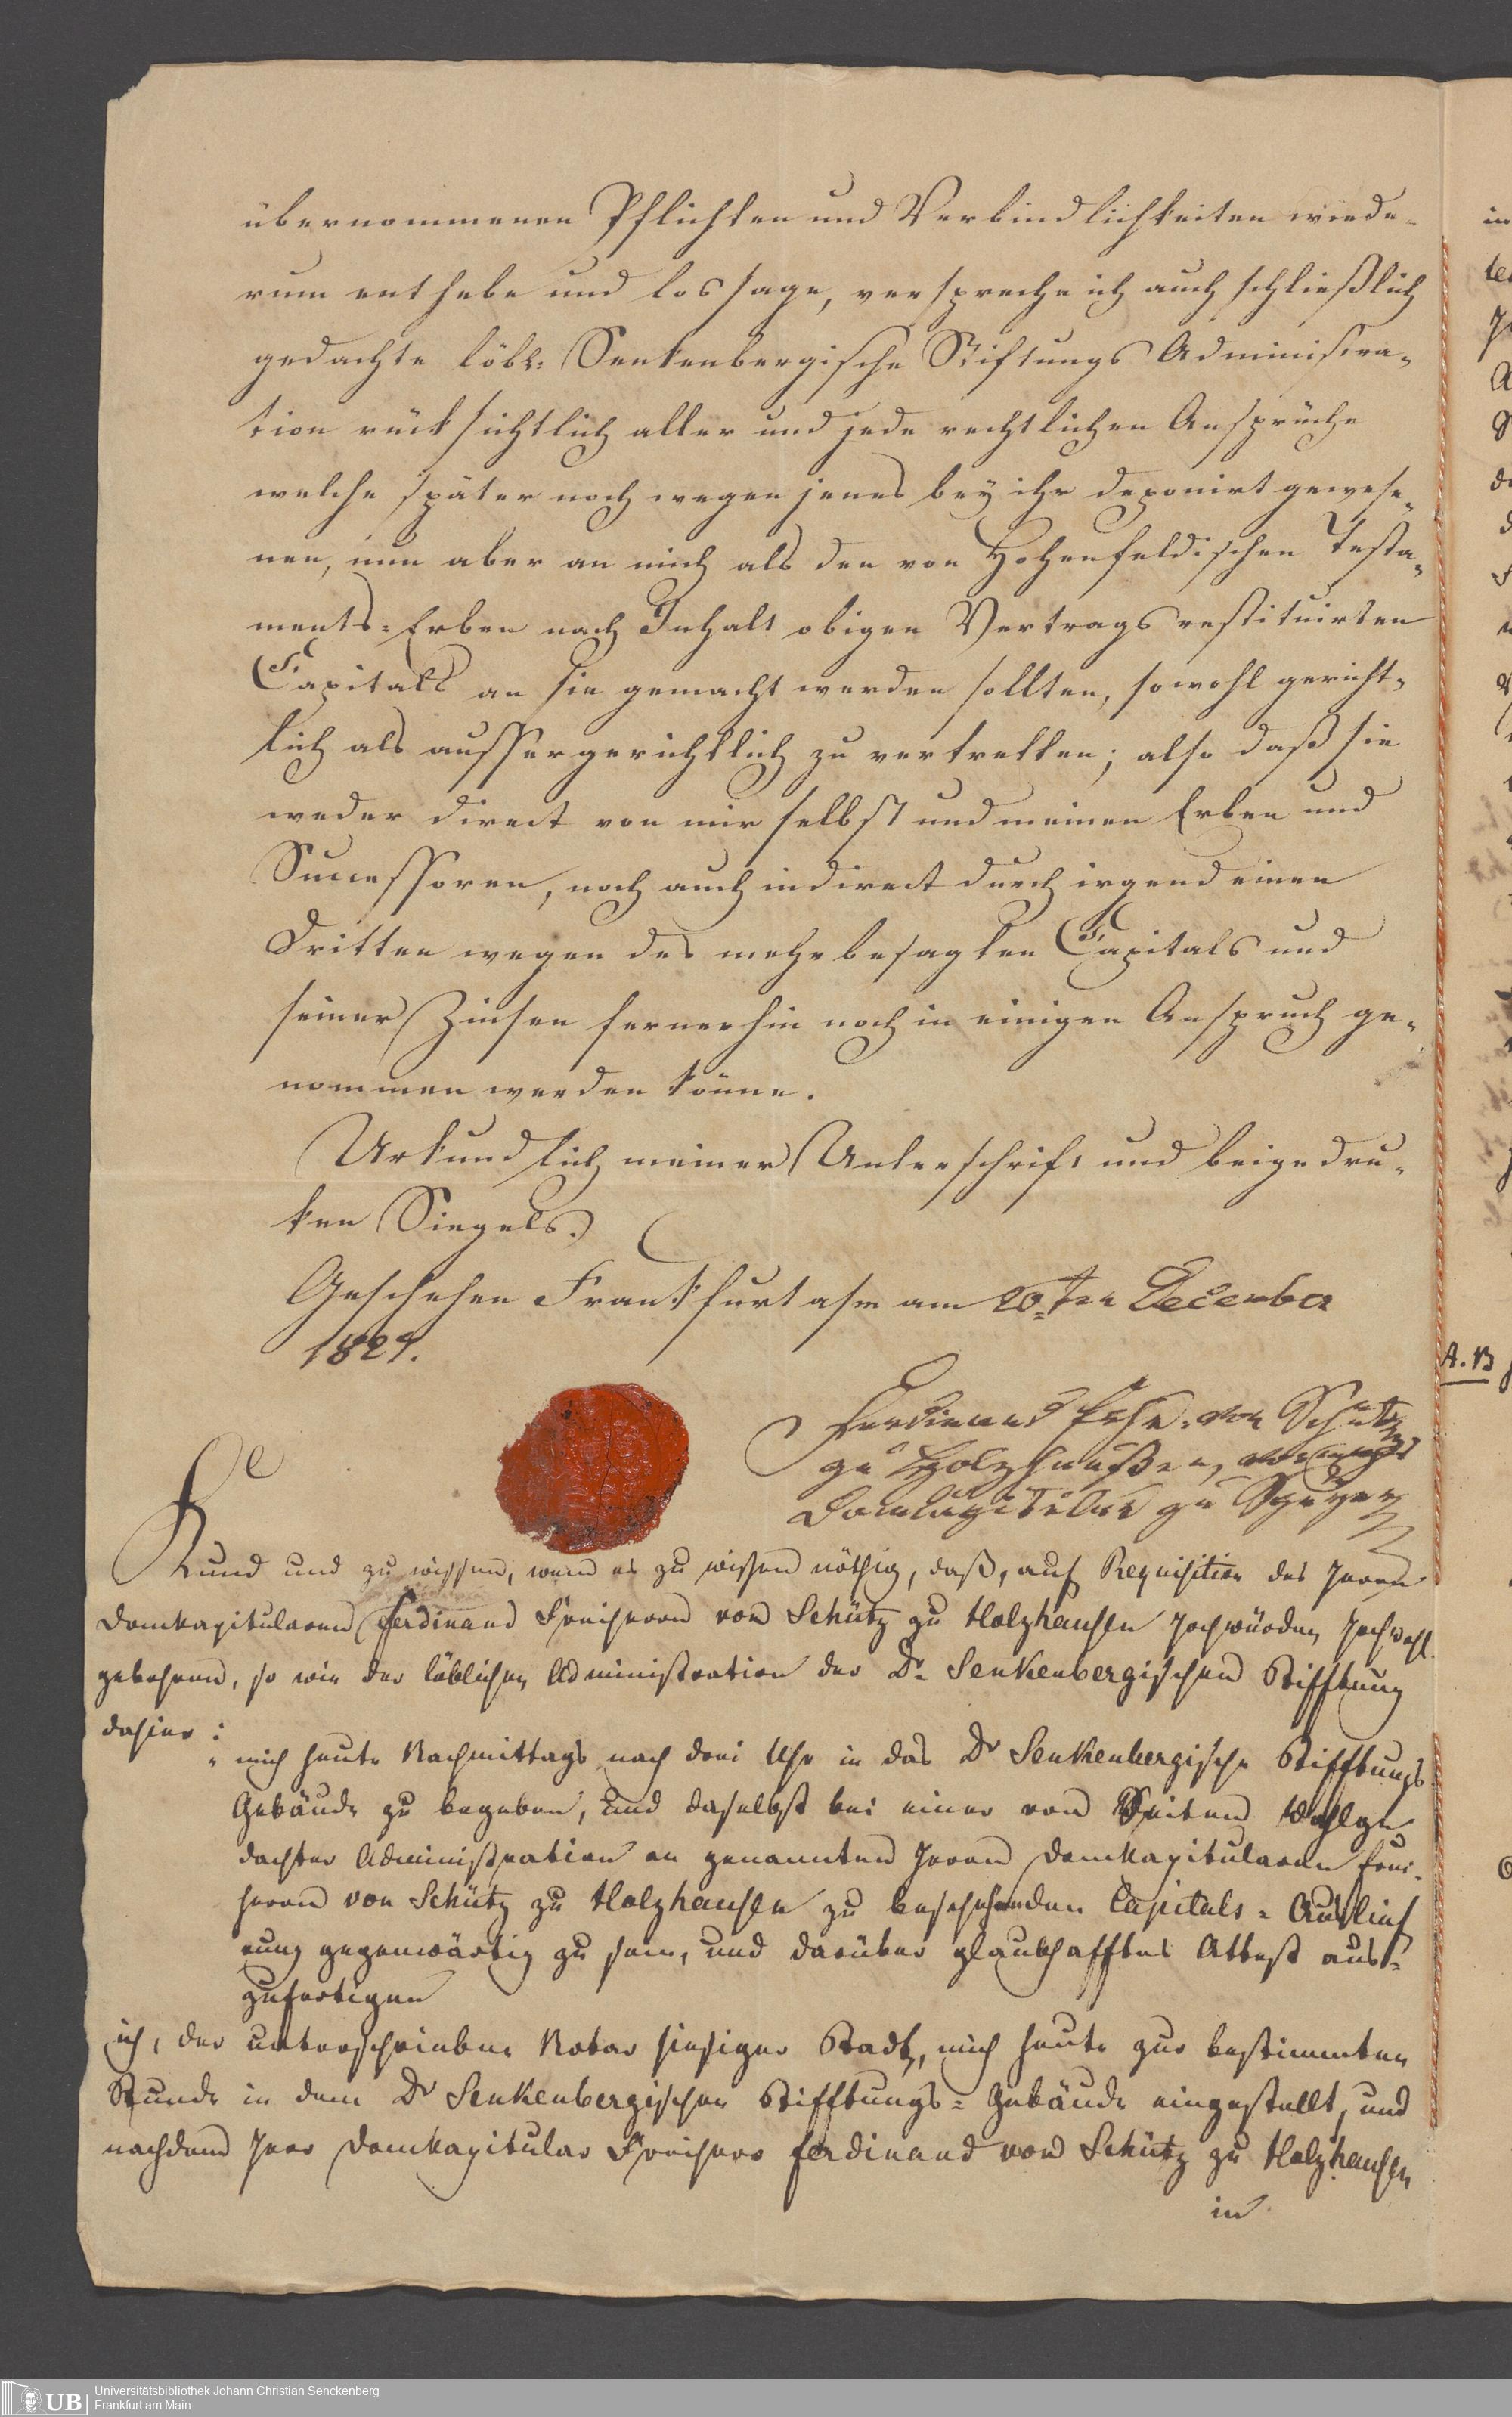 übernommenen Pflichten und Verbindlichkeiten wiede-
rum enthebe und lossage, verspreche ich auch schließlich
gedachte löbl: Senkenbergische Stiftungs Administra-
tion rücksichtlich aller und jede rechtlichen Ansprüche
welche später noch wegen jenes bey ihr deponirt gewese-
nen, nun aber an mich als den von Hohenfeldischen Testa-
ments-Erben nach Inhalt obigen Vertrags restituirten
Capitals an sie gemacht werden sollten, sowohl gericht-
lich als aussergerichtlich zu vertretten; also daß sie
weder direct von mir selbst und meinen Erben und
Successoren, noch auch indirect durch irgend einen
Dritten wegen des mehrbesagten Capitals und
seiner Zinsen fernerhin noch in einigen Anspruch ge-
nommen werden könne.
Urkundlich meiner Unterschrift und beigedru-
ken Siegels.
Geschehen Frankfurt a/m am 20ten December
1827.
Ferdinand Frhr. von Schütz
zu Holzhaußen,
Domcapitular zu Speyer
Kund und zu wissen, wem es zu wissen nöthig, daß, auf Requisition des Herrn
Domkapitularen Ferdinand Freiherrn von Schütz zu Holzhausen Hochwürden Hochwohl
gebohren, so wie der löblichen Administration der Dr Senkenbergischen Stifftung
dahier:
mich heute Nachmittags nach drei Uhr in das Dr Senkenbergische Stifftungs
Gebäude zu begeben, und daselbst bei einer von Seiten Wohlge
dachter Administration an genannten Herrn Domkapitularen Frei-
herrn von Schütz zu Holzhausen zu beschehenden Capitals-Auslief
rung gegenwärtig zu seyn, und darüber glaubhafftes Attest aus-
zufertigen
ich, der unterschriebne Notar hiesiger Stadt, mich heute zur bestimmten
Stunde in dem Dr Senkenbergischen Stifftungs-Gebäude eingestellt, und
nachdem Herr Domkapitular Freiherr Ferdinand von Schütz zu Holzhausen
in
A. B
UB
Universitätsbibliothek Johann Christian Senckenberg
Frankfurt am Main